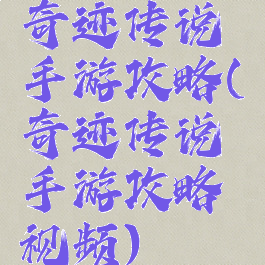 奇迹传说
手游攻略(
奇迹传说
手游攻略
视频)